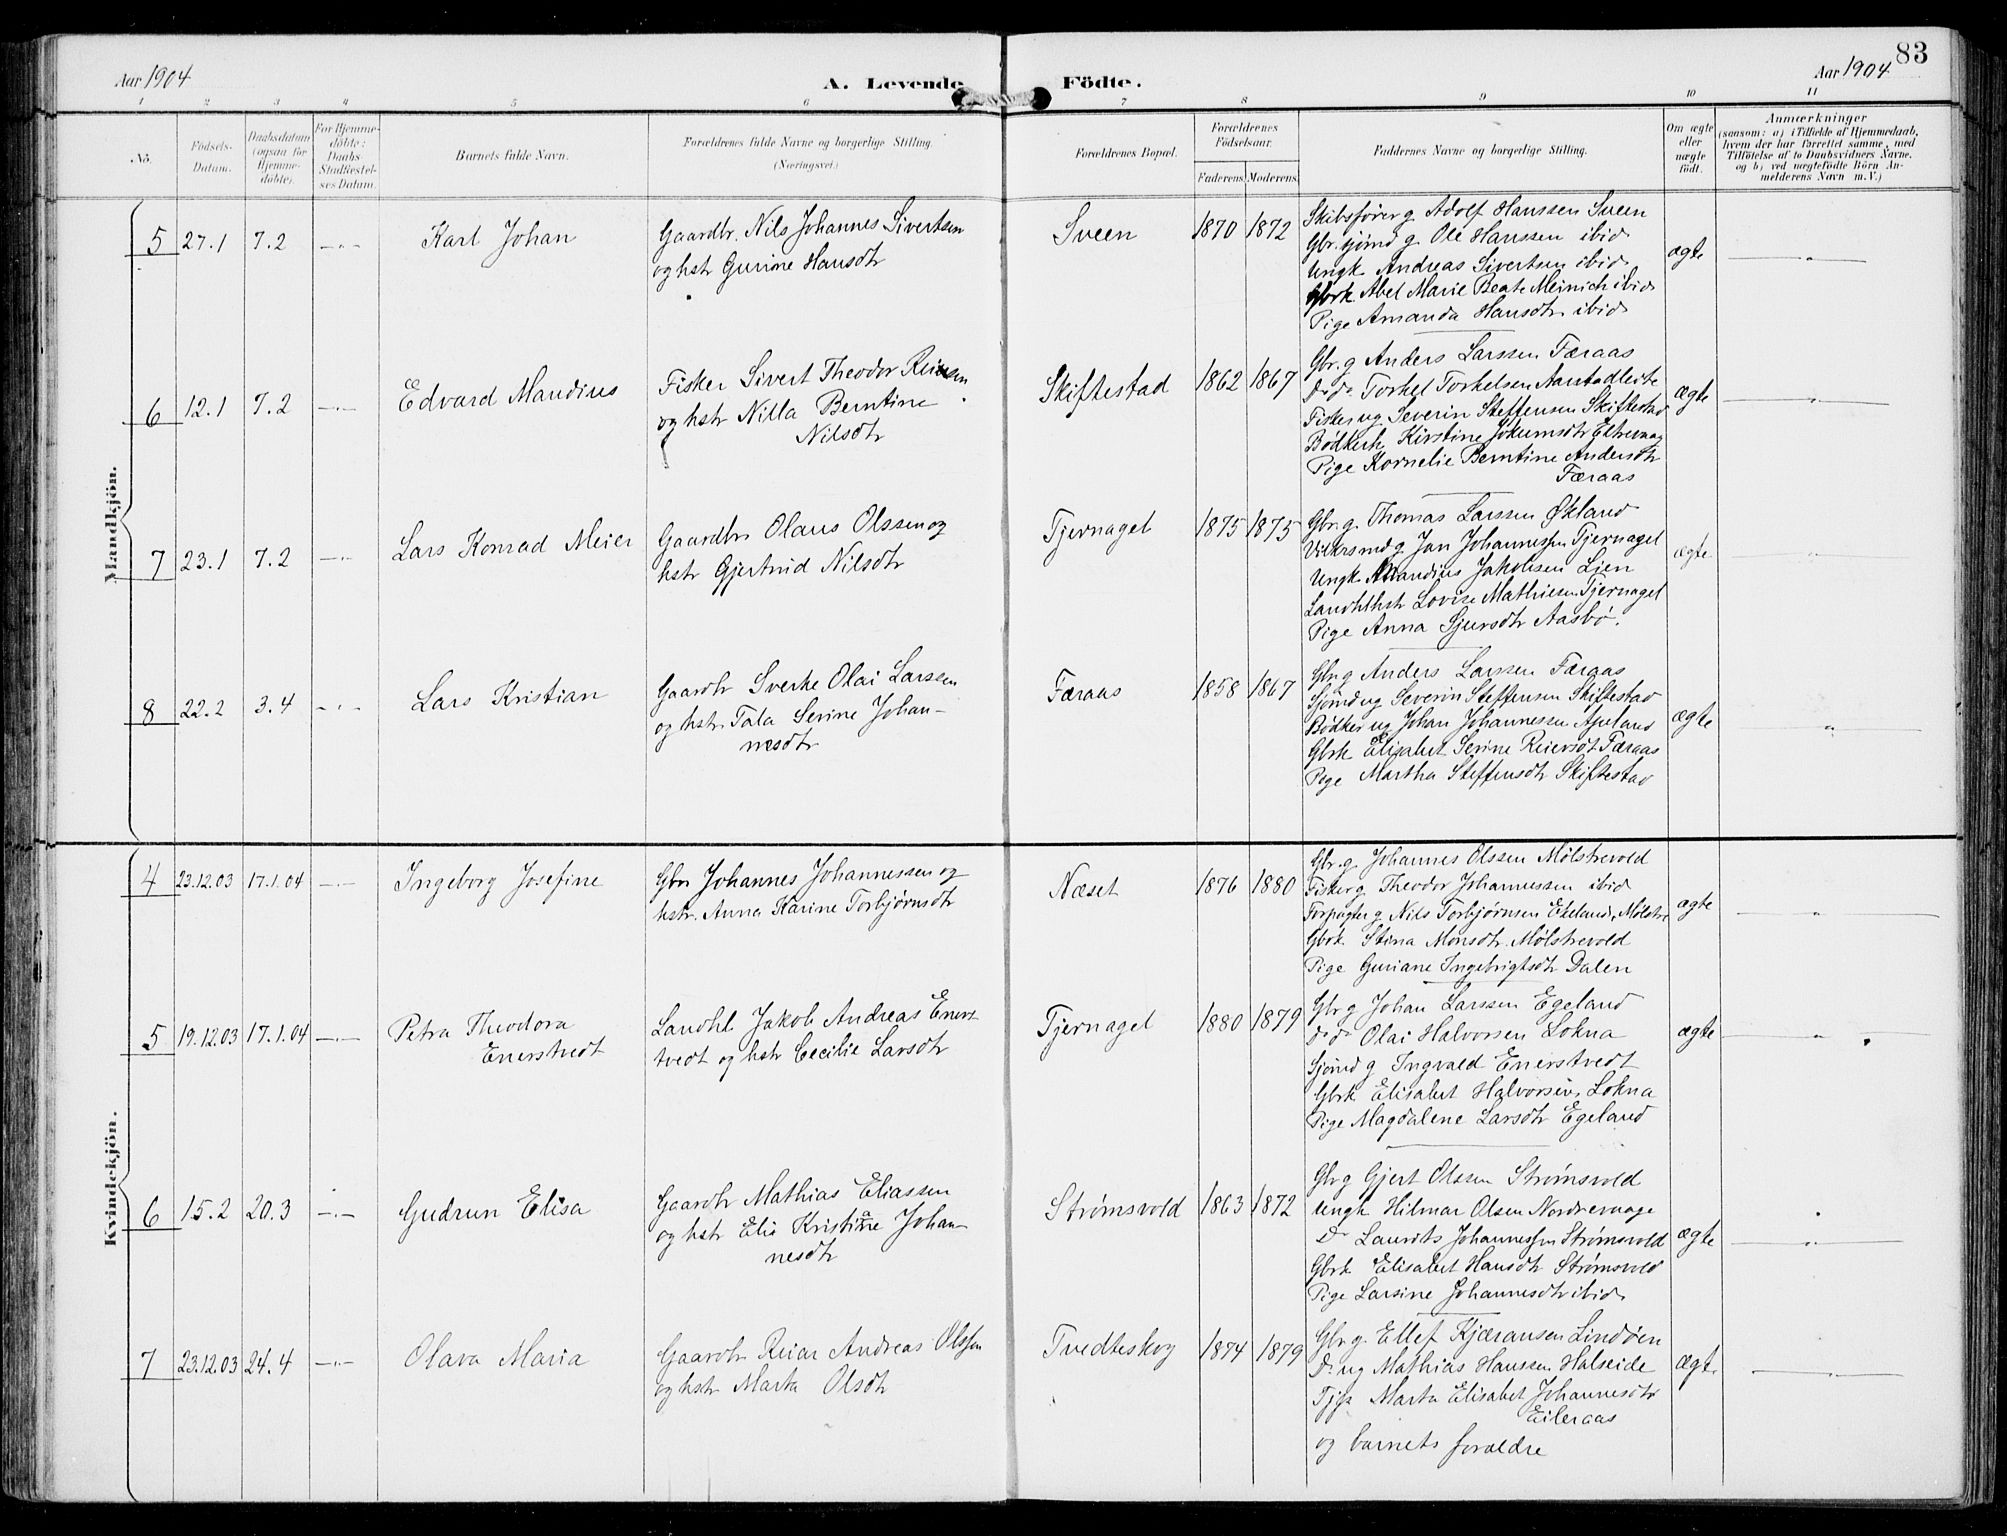 83
Aar 1904
A. Levende Födte.
Aar 1904
1 2 3 4 5 6 7 8 9 10 11
No.
Födsels-Datum.
Daabsdatum (ogsaa for Hjemme-döbte).
For Hjemme-döbte: Daabs-Stadfæstel-ses Datum.
Barnets fulde Navn.
Forældrenes fulde Navne og borgerlige Stilling.
(Næringsvei.)
Forældrenes Bopæl.
Forældrenes Födselsaar.
Faderens. Moderens.
Faddernes Navne og borgerlige Stilling.
Om ægte eller uægte födt.
Anmærkninger
(saasom: a) i Tilfælde af Hjemmedaab, hvem der har forrettet samme, med Tilföielse af to Daabsvidners Navne, og b) ved uægtefödte Börn Anmelderens Navn m. V.)
Mandkjön.
5 27.1 7.2 —"— Karl Johan
Gaardbr. Nils Johannes Sivertsen
og hstr Gurine Hansdtr
Sveen 1870 1872
Skibsfører g. Adolf Hanssen Sveen
Gbr. sjömd g. Ole Hanssen ibid
Ungk. Andreas Sivertsen ibid.
Gbrk Abel Marie Beate Meinich ibid
Pige Amanda Hansdtr ibid
ægte —"—
6 12.1 7.2 —"— Edvard Mandius
Fisker Sivert Theodor Reiersen
og hstr Nilla Berntine
Nilsdtr
Skiftestad 1862 1867
Gbr. g Anders Larssen Færaas
do do Torkel Torkelsen Aarstadleite
Fisker ug Severin Steffensen Skiftestad
Bødkerk. Kirstine Jokumsdtr
Pige Kornelie Berntine Andersdtr
Færaas
ægte —"—
7 23.1 7.2 —"— Lars Konrad Meier
Gaardbr Olaus Olssen og
hstr Gjertrud Nilsdtr
Tjernagel 1875 1875
Gbr. g. Thomas Larssen Økland
g Jan Johannessen Tjernagel
Ungk Mandius Jakobsen Lien
Landhlhstr Lovise Mathiesen Tjernagel
Pige Anna Sjursdtr Aasbø.
ægte —"—
8 22.2 3.4 —"— Lars Kristian
Gaardbr Sverke Olai Larssen
og hstr. Tala Serine Johan-
nesdtr
Færaas 1858 1867
Gbr g Anders Larssen Færaas
Sjömd ug Severin Steffensen Skiftestad
Bødker ug Johan Johannessen Apeland
Gbrk Elisabet Serine Reiersdt Færaas
Pige Martha Steffensdtr Skiftestad
ægte —"—
Kvindekjön.
4 23.12.03 17.1.04 —"— Ingeborg Josefine
Gbr Johannes Johannessen og
hstr. Anna Karine Torbjørnsdtr
Næset 1876 1880
Gbr. g. Johannes Olssen Mølstrevold
Fisker g Theodor Johannessen ibid
Forpagter g Nils Torbjørnsen Ekeland, Mølstre
Gbrk Stina Monsdtr. Mølstrevold
Pige Guriane Ingebrigtsdtr Dalen
ægte —"—
5 19.12.03 17.1.04 —"— Petra Theodora
Enerstvedt
Landhl Jakob Andreas Enerst
tvedt og hstr Cecilie Larsdtr
Tjernagel 1880 1879
Gbr g Johan Larssen Egeland
do do Olai Halvorsen Lokna
Sjömd g Ingvald Enerstvedt
Gbrk Elisabet Halvorsen Lokna
Pige Magdalene Larsdtr Egeland
ægte —"—
6 15.2 20.3 —"— Gudrun Elisa
Gaardbr Mathias Eliassen
og hstr Elis Kristiane Johan-
nesdtr
Strømsvold 1863 1872
Gbr g Gjert Olssen Strømsvold
Ungk Hilmar Olsen Nordrevaage
Do Laurits Johannessen Strømsvold
Gbrk Elisabet Hansdtr Strømsvold
Pige Larsine Johannesdtr ibid.
ægte —"—
7 23.12.03 24.4 —"— Olava Maria
Gaardbr Reiar Andreas Olsson
og hstr Marta Olsdtr
Tvedteskog 1874 1879
Gbr g. Ellef Kjæransen Lindöen
Do ug Mathias Hanssen Halseide
Tjp Marta Elisabet Johannesdtr
Eileraas
og barnets foraldre
ægte —"—